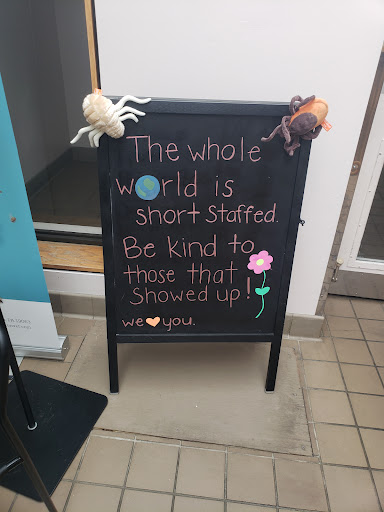 The whole
world is
short staffed.
Be kind to
those that
showed up!
we you.